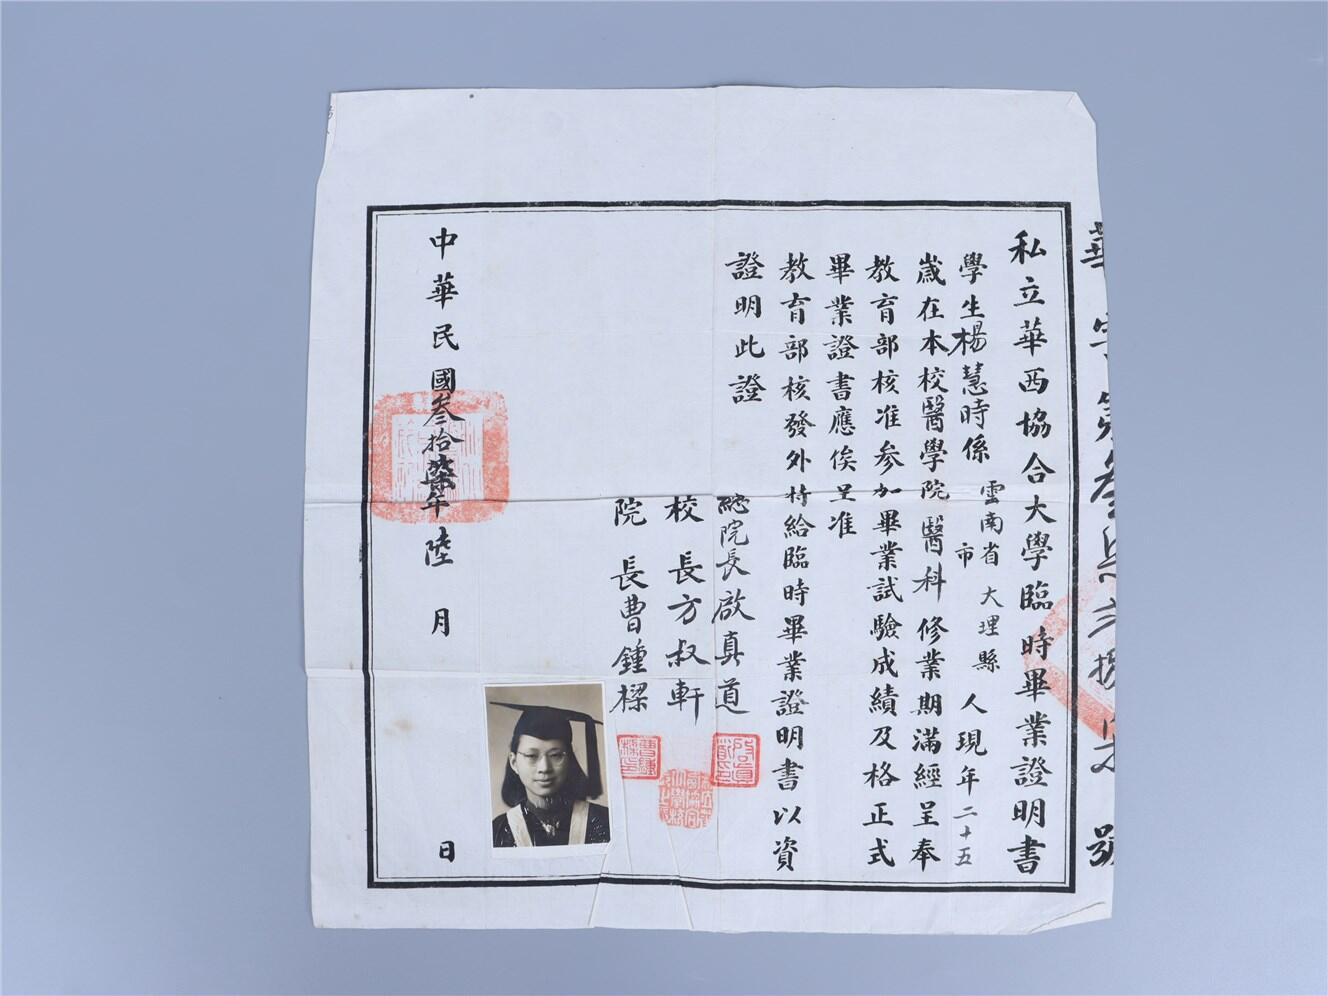 私立華西協合大學臨時畢業證明書
學生楊慧時係雲南省大理縣人現年二十五
市
歲在本校醫學院醫科修業期滿經呈奉
教育部核准參加畢業試驗成績及格正式
畢業證書應俟呈准
教育部核發外特給臨時畢業證明書以資
證明此證
總院長啟真道
校長方叔軒
院長曹鍾樑
中華民國叁拾柒年陸月日